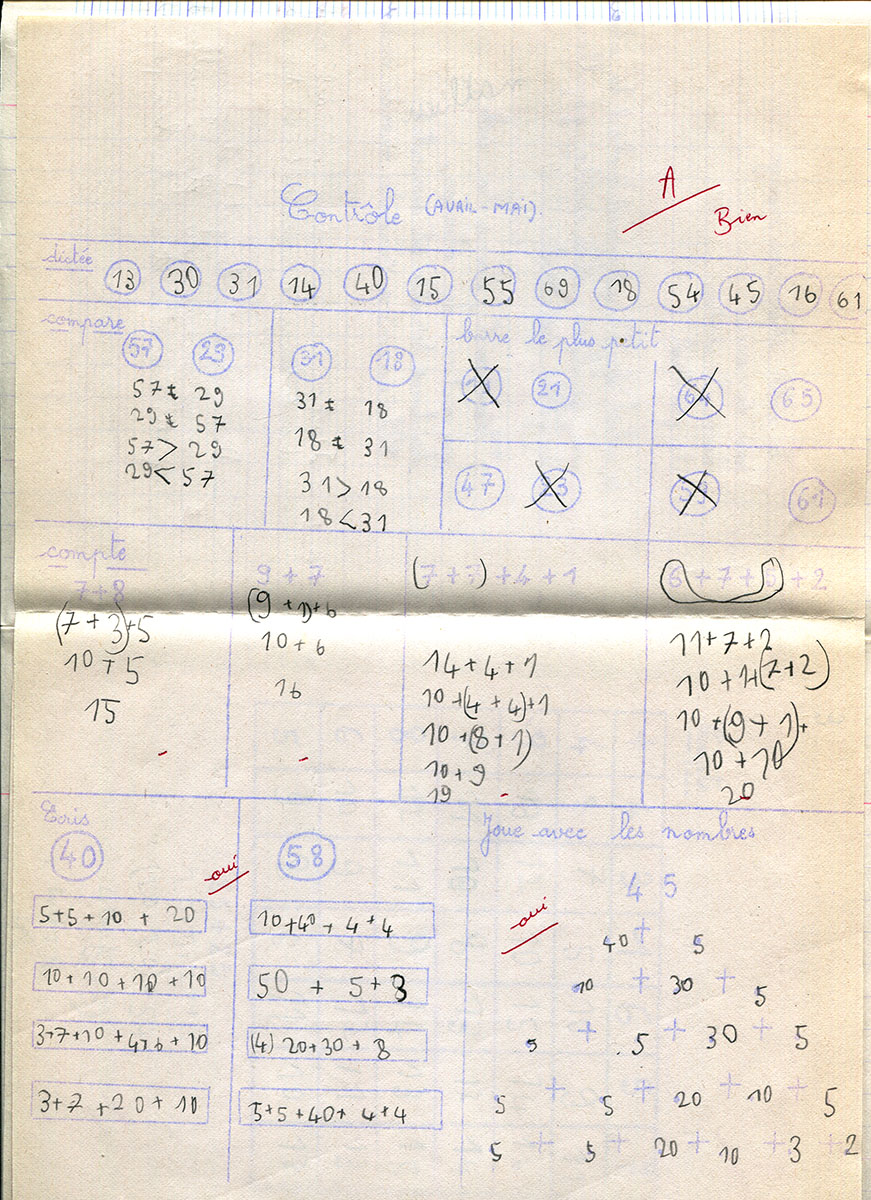 Contrôle (AVRIL-MAI).
A
Bien
dictée
13 30 31 14 40 15 55 69 18 54 45 16 61
compare
57 29
57 ≠ 29
29 ≠ 57
57 > 29
29 < 57
31 18
31 ≠ 18
18 ≠ 31
31 > 18
18 < 31
barre le plus petit
21
64 65
47 23
59 61
compte
7+8
(7+3)+5
10+5
15
9+7
(9+1)+6
10+6
16
(7+7)+4+1
14+4+1
10+(4+4)+1
10+(8+1)
10+9
19
+7+ +2
11+7+2
10+1+(7+2)
10+(9+1)+
10+10
20
Ecris
40
oui
5+5+10+20
10+10+10+10
3+7+10+4+6+10
3+7+20+10
58
10+40+4+4
50+5+3
(4) 20+30+8
5+5+40+4+4
Joue avec les nombres
oui
45
40+5
10+30+5
5+5+30+5
5+5+20+10+5
5+5+20+10+3+2